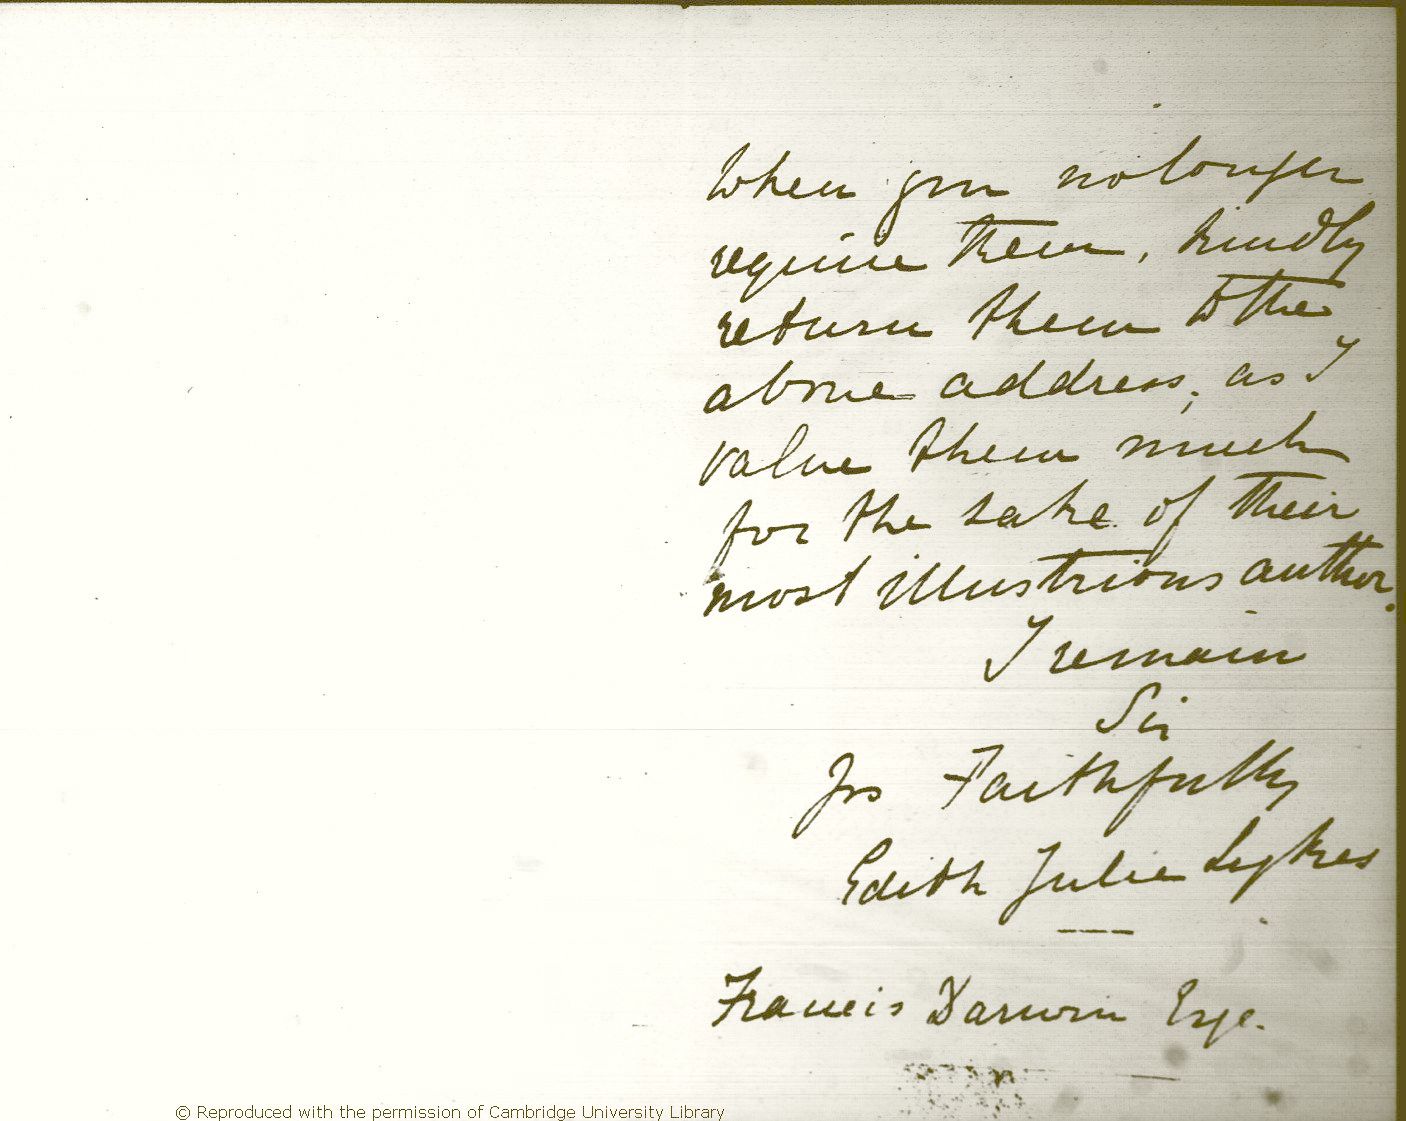 When you no longer
require them, kindly
return them to the
above address, as I
value them much
for the sake of their
most illustrious author.
I remain
Sir
Yrs Faithfully
Edith Julie Sykes
Francis Darwin Esqe.
© Reproduced with the permission of Cambridge University Library